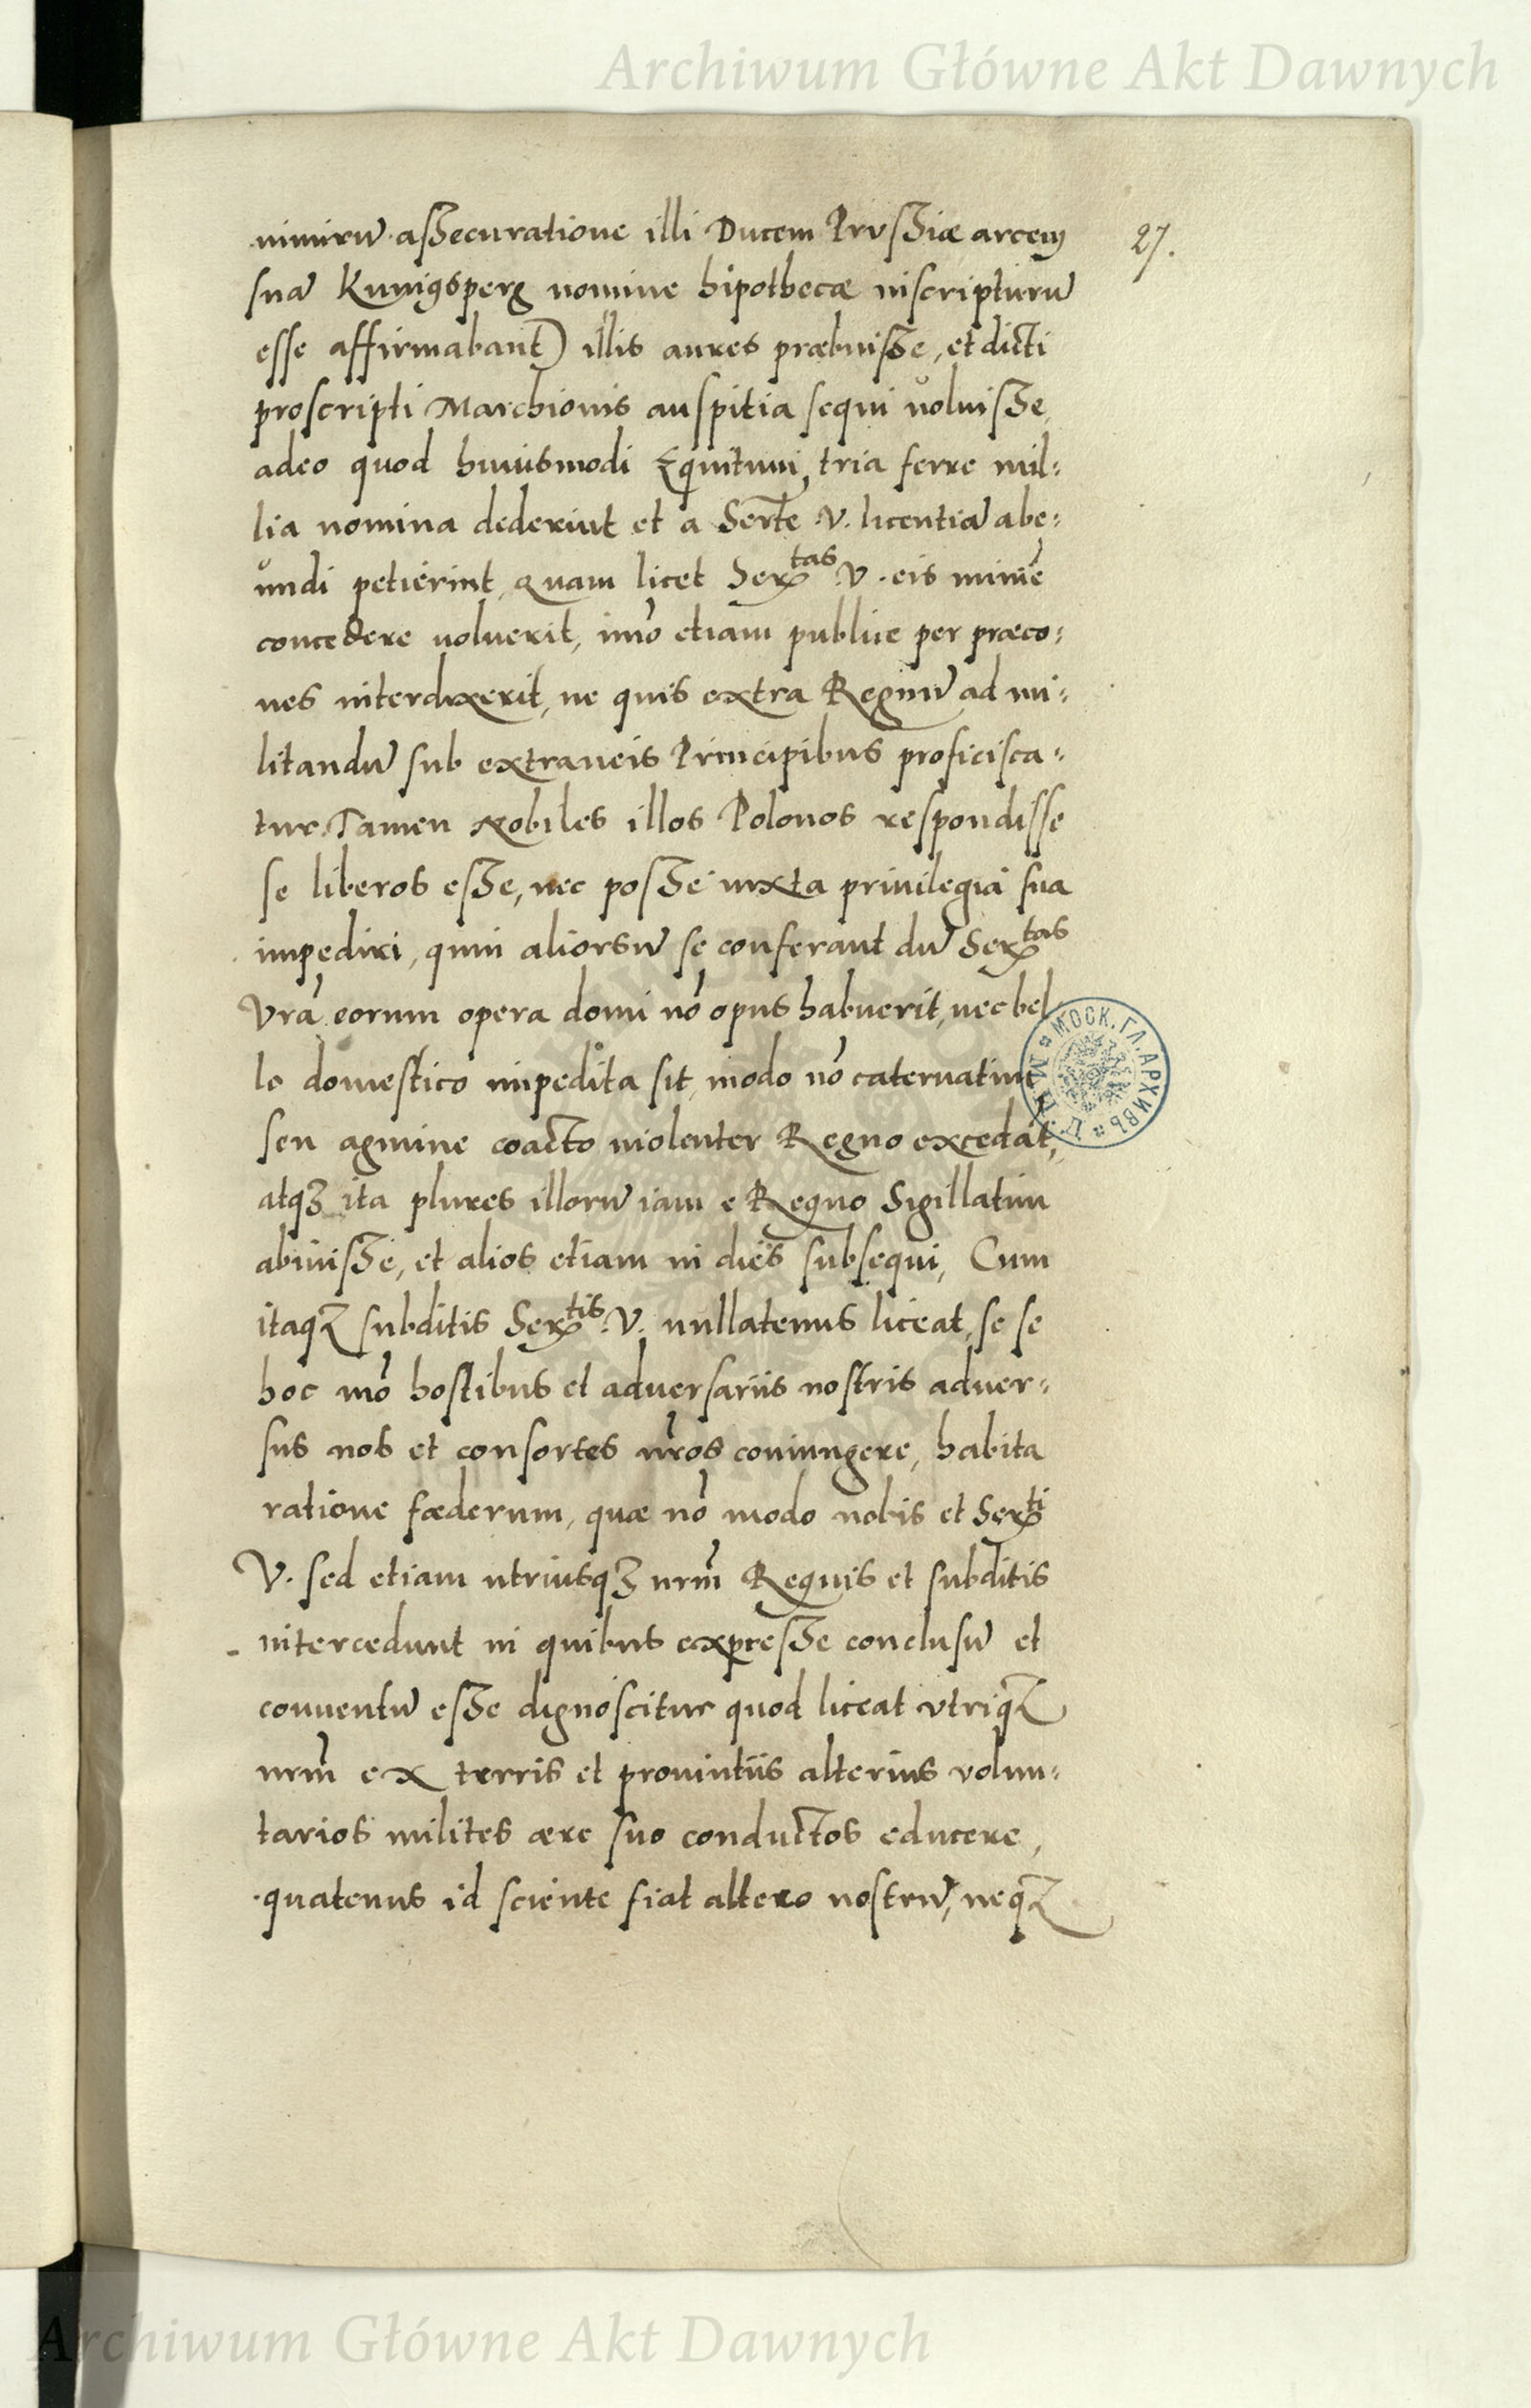 Archiwum Główne Akt Dawnych
27.
nimirũ assecuratione illi Ducem Prussiæ arcem
suã Kunigsperg nomine hipothecæ inscripturũ
esse affirmabant) illis aures præbuisse, et dicti
proscripti Marchionis auspitia sequi uoluisse,
adeo quod huiusmodi Equitum, tria ferre mil:
lia nomina dederint et a Serte V. licentiã abe:
undi petierint, quam licet Sertas V. eis minime
concedere uoluerit, imo etiam publice per præco:
nes interdixerit, ne quis extra Regnũ ad mi:
litandũ sub extraneis Principibus proficisca:
tur. Tamen Nobiles illos Polonos respondisse
se liberos esse, nec posse iuxta priuilegia sua
impediri, quin aliorsũ se conferant dũ Sertas
Vrã eorum opera domi nõ opus habuerit, nec bel
lo domestico impedita sit, modo nõ cateruatim
seu agmine coacto uiolenter Regno excedãt,
atqꝫ ita plures illorũ iam e Regno Sigillatim
abiuisse, et alios etiam in dies subsequi, Cum
itaqꝫ subditis Sertis V. nullatenus liceat, se se
hoc mõ hostibus et aduersariis nostris aduer:
sus nos et consortes nr̃os coniungere, habita
ratione fæderum, quæ nõ modo nobis et Serti
V. sed etiam utriusqꝫ nrm̃ Regnis et subditis
intercedunt in quibus expresse conclusũ et
conuentũ esse dignoscitur quod liceat utriqꝫ
nrm̃ ex terris et prouintiis alterius volun:
tarios milites ære suo conductos educere,
quatenus id sciente fiat altero nostrũ, neqꝫ
МОСК. ГЛ. АРХИВЪ
Archiwum Główne Akt Dawnych